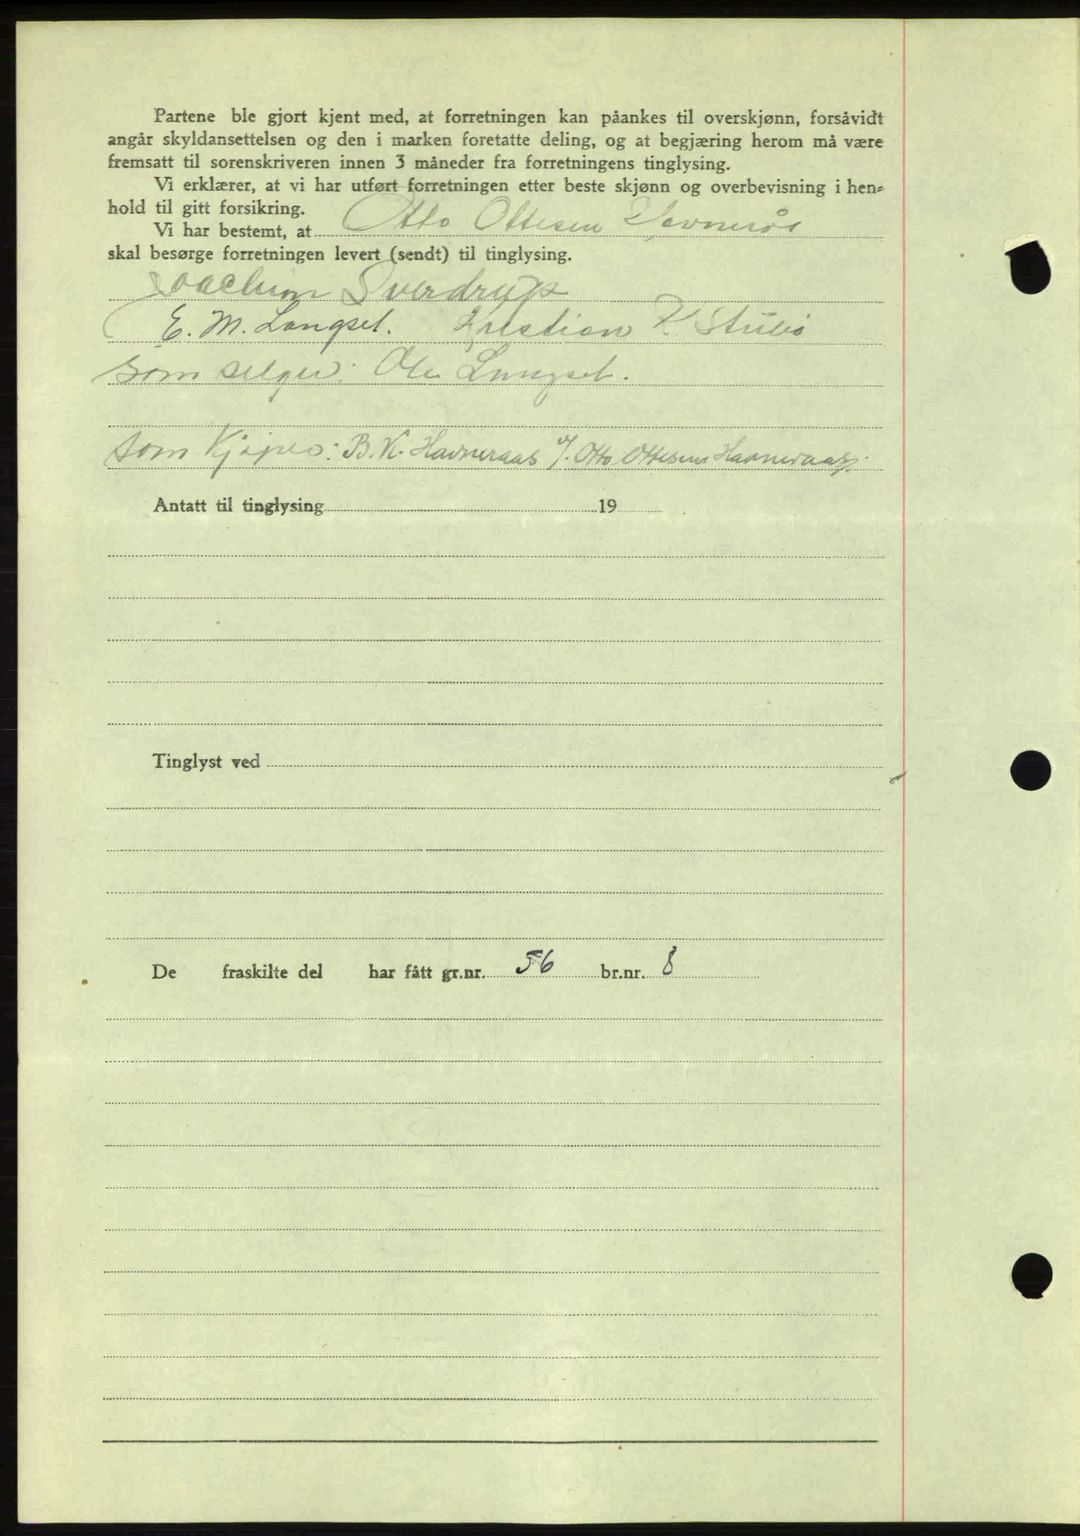 Partene ble gjort kjent med, at forretningen kan påankes til overskjønn, forsåvidt
angår skyldansettelsen og den i marken foretatte deling, og at begjæring herom må være
fremsatt til sorenskriveren innen 3 måneder fra forretningens tinglysing.
Vi erklærer, at vi har utført forretningen etter beste skjønn og overbevisning i hen-
hold til gitt forsikring.
Vi har bestemt, at Otto Ottesen Havnerås
skal besørge forretningen levert (sendt) til tinglysing.
Joachim Sverdrup
E. M. Langset. Kristian K. Stubø
som selger: Ole Langset.
som Kjøper: B. K. Havneraas v/. Otto Ottesen Havneraas.
Antatt til tinglysing 19
Tinglyst ved
De fraskilte del har fått gr.nr. 56 br.nr. 8